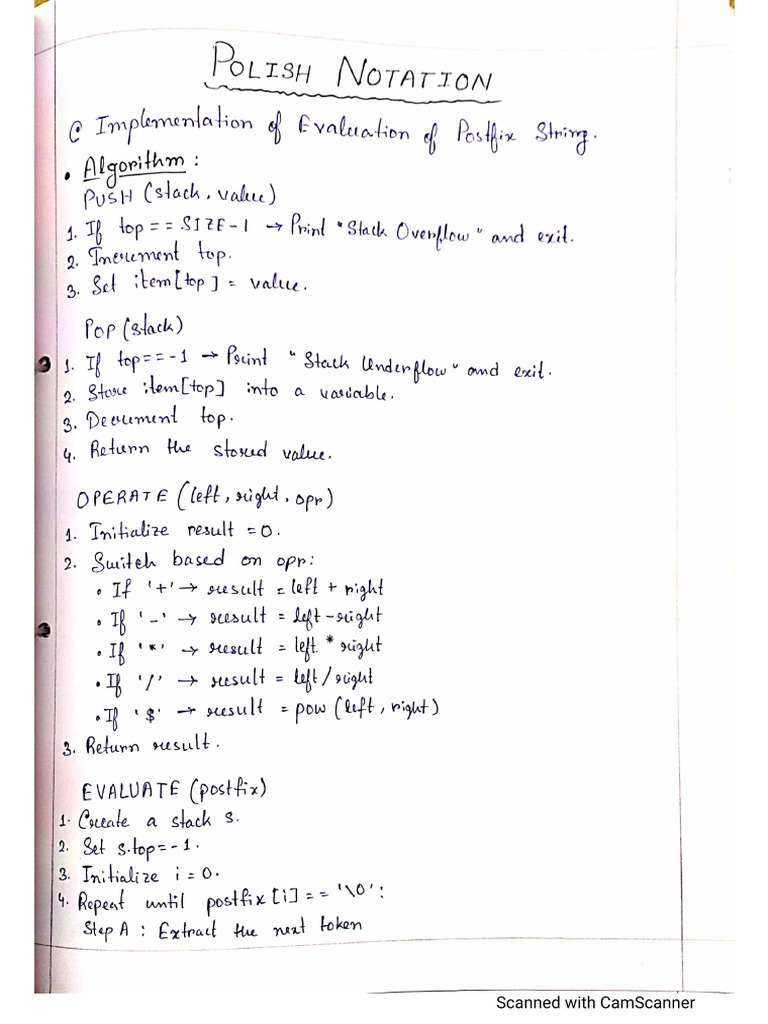 POLISH NOTATION
@ Implementation of Evaluation of Postfix String.
• Algorithm :
PUSH (stack, value)
1. If top == SIZE-1 → Print "Stack Overflow" and exit.
2. Increment top.
3. Set item[top] = value.
POP (stack)
1. If top==-1 → Print "Stack Underflow" and exit.
2. Store item[top] into a variable.
3. Decrement top.
4. Return the stored value.
OPERATE (left, right, opr)
1. Initialize result = 0.
2. Switch based on opr:
• If '+' → result = left + right
• If '-' → result = left - right
• If '*' → result = left * right
• If '/' → result = left / right
• If '$' → result = pow (left, right)
3. Return result.
EVALUATE (postfix)
1. Create a stack s.
2. Set s.top=-1.
3. Initialize i = 0.
4. Repeat until postfix [i] == '\0':
Step A : Extract the next token
Scanned with CamScanner